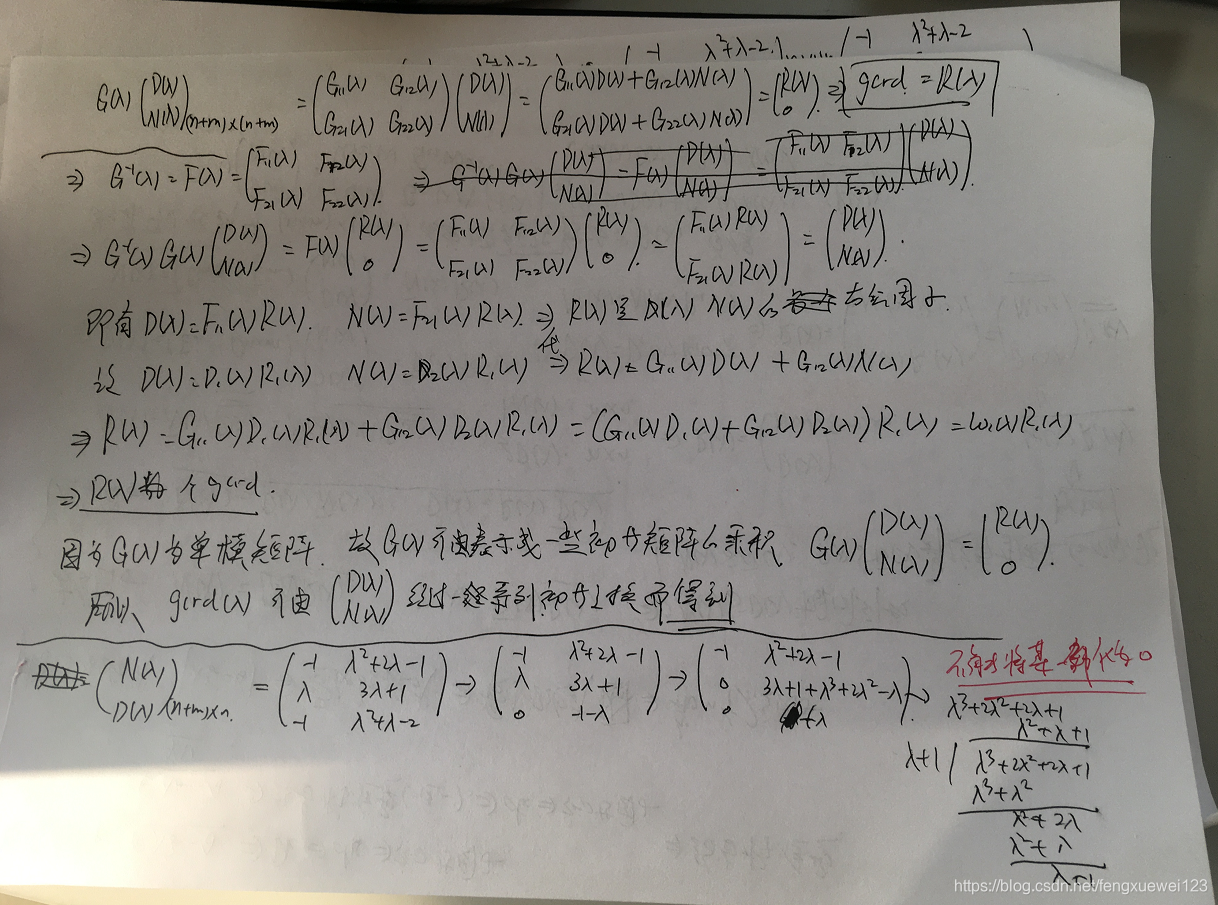 λ²+λ-2 ( -1 λ²+λ-2 ) ( -1 λ²+λ-2 )
G(λ) (D(λ) N(λ))(n+m)×(n+m) = (G₁₁(λ) G₁₂(λ) G₂₁(λ) G₂₂(λ)) (D(λ) N(λ)) = (G₁₁(λ)D(λ)+G₁₂(λ)N(λ) G₂₁(λ)D(λ)+G₂₂(λ)N(λ)) = (R(λ) 0) ⇒ gcrd = R(λ)
⇒ G⁻¹(λ) = F(λ) = (F₁₁(λ) F₁₂(λ) F₂₁(λ) F₂₂(λ)). ⇒ G⁻¹(λ) G(λ) (D(λ) N(λ)) = F(λ) (D(λ) N(λ)) = (F₁₁(λ) F₁₂(λ) F₂₁(λ) F₂₂(λ)) (D(λ) N(λ)).
⇒ G⁻¹(λ) G(λ) (D(λ) N(λ)) = F(λ) (R(λ) 0) = (F₁₁(λ) F₁₂(λ) F₂₁(λ) F₂₂(λ)) (R(λ) 0) = (F₁₁(λ)R(λ) F₂₁(λ)R(λ)) = (D(λ) N(λ)).
即有 D(λ)=F₁₁(λ)R(λ). N(λ)=F₂₁(λ)R(λ). ⇒ R(λ)是D(λ) N(λ)的右公因子.
设 D(λ)=D₁(λ)R₁(λ) N(λ)=D₂(λ)R₁(λ) 代⇒ R(λ)=G₁₁(λ)D(λ)+G₁₂(λ)N(λ)
⇒ R(λ)=G₁₁(λ)D₁(λ)R₁(λ)+G₁₂(λ)D₂(λ)R₁(λ)=(G₁₁(λ)D₁(λ)+G₁₂(λ)D₂(λ))R₁(λ)=W₁(λ)R₁(λ)
⇒ R(λ)为个gcrd.
因为G(λ)为单模矩阵. 故G(λ)可由表示成一些初等矩阵的乘积 G(λ) (D(λ) N(λ)) = (R(λ) 0).
所以 gcrd(λ) 可由 (D(λ) N(λ)) 经过一系列初等变换而得到
(N(λ) D(λ))(n+m)×n = (-1 λ²+2λ-1 λ 3λ+1 -1 λ²+λ-2) → (-1 λ²+2λ-1 λ 3λ+1 0 -1-λ) → (-1 λ²+2λ-1 0 3λ+1+λ³+2λ²-λ 0 1+λ) →
λ³+2λ²+2λ+1
λ²+λ+1
λ+1 / λ³+2λ²+2λ+1
λ³+λ²
λ²+2λ
λ²+λ
λ+1
https://blog.csdn.net/fengxuewei123